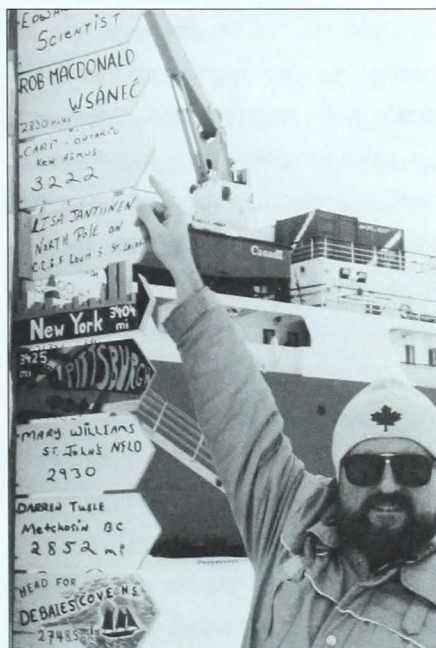 SCIENTIST
ROB MACDONALD
WSÁNEĆ
2830 miles
CARP. ONTARIO
KEN ASMUS
3222
LISA JANTUNEN
NORTH POLE ON
C.C.G.S LOUIS S. St. Laurent
Canada
New York 3404
mi
3425
mi
PITTSBURGH
MARY WILLIAMS
ST. JOHN'S NFLD
2930
DARREN TUELE
Metchosin BC
2852 mi
HEAD FOR
DEBAIES COVE N.S.
2748.5